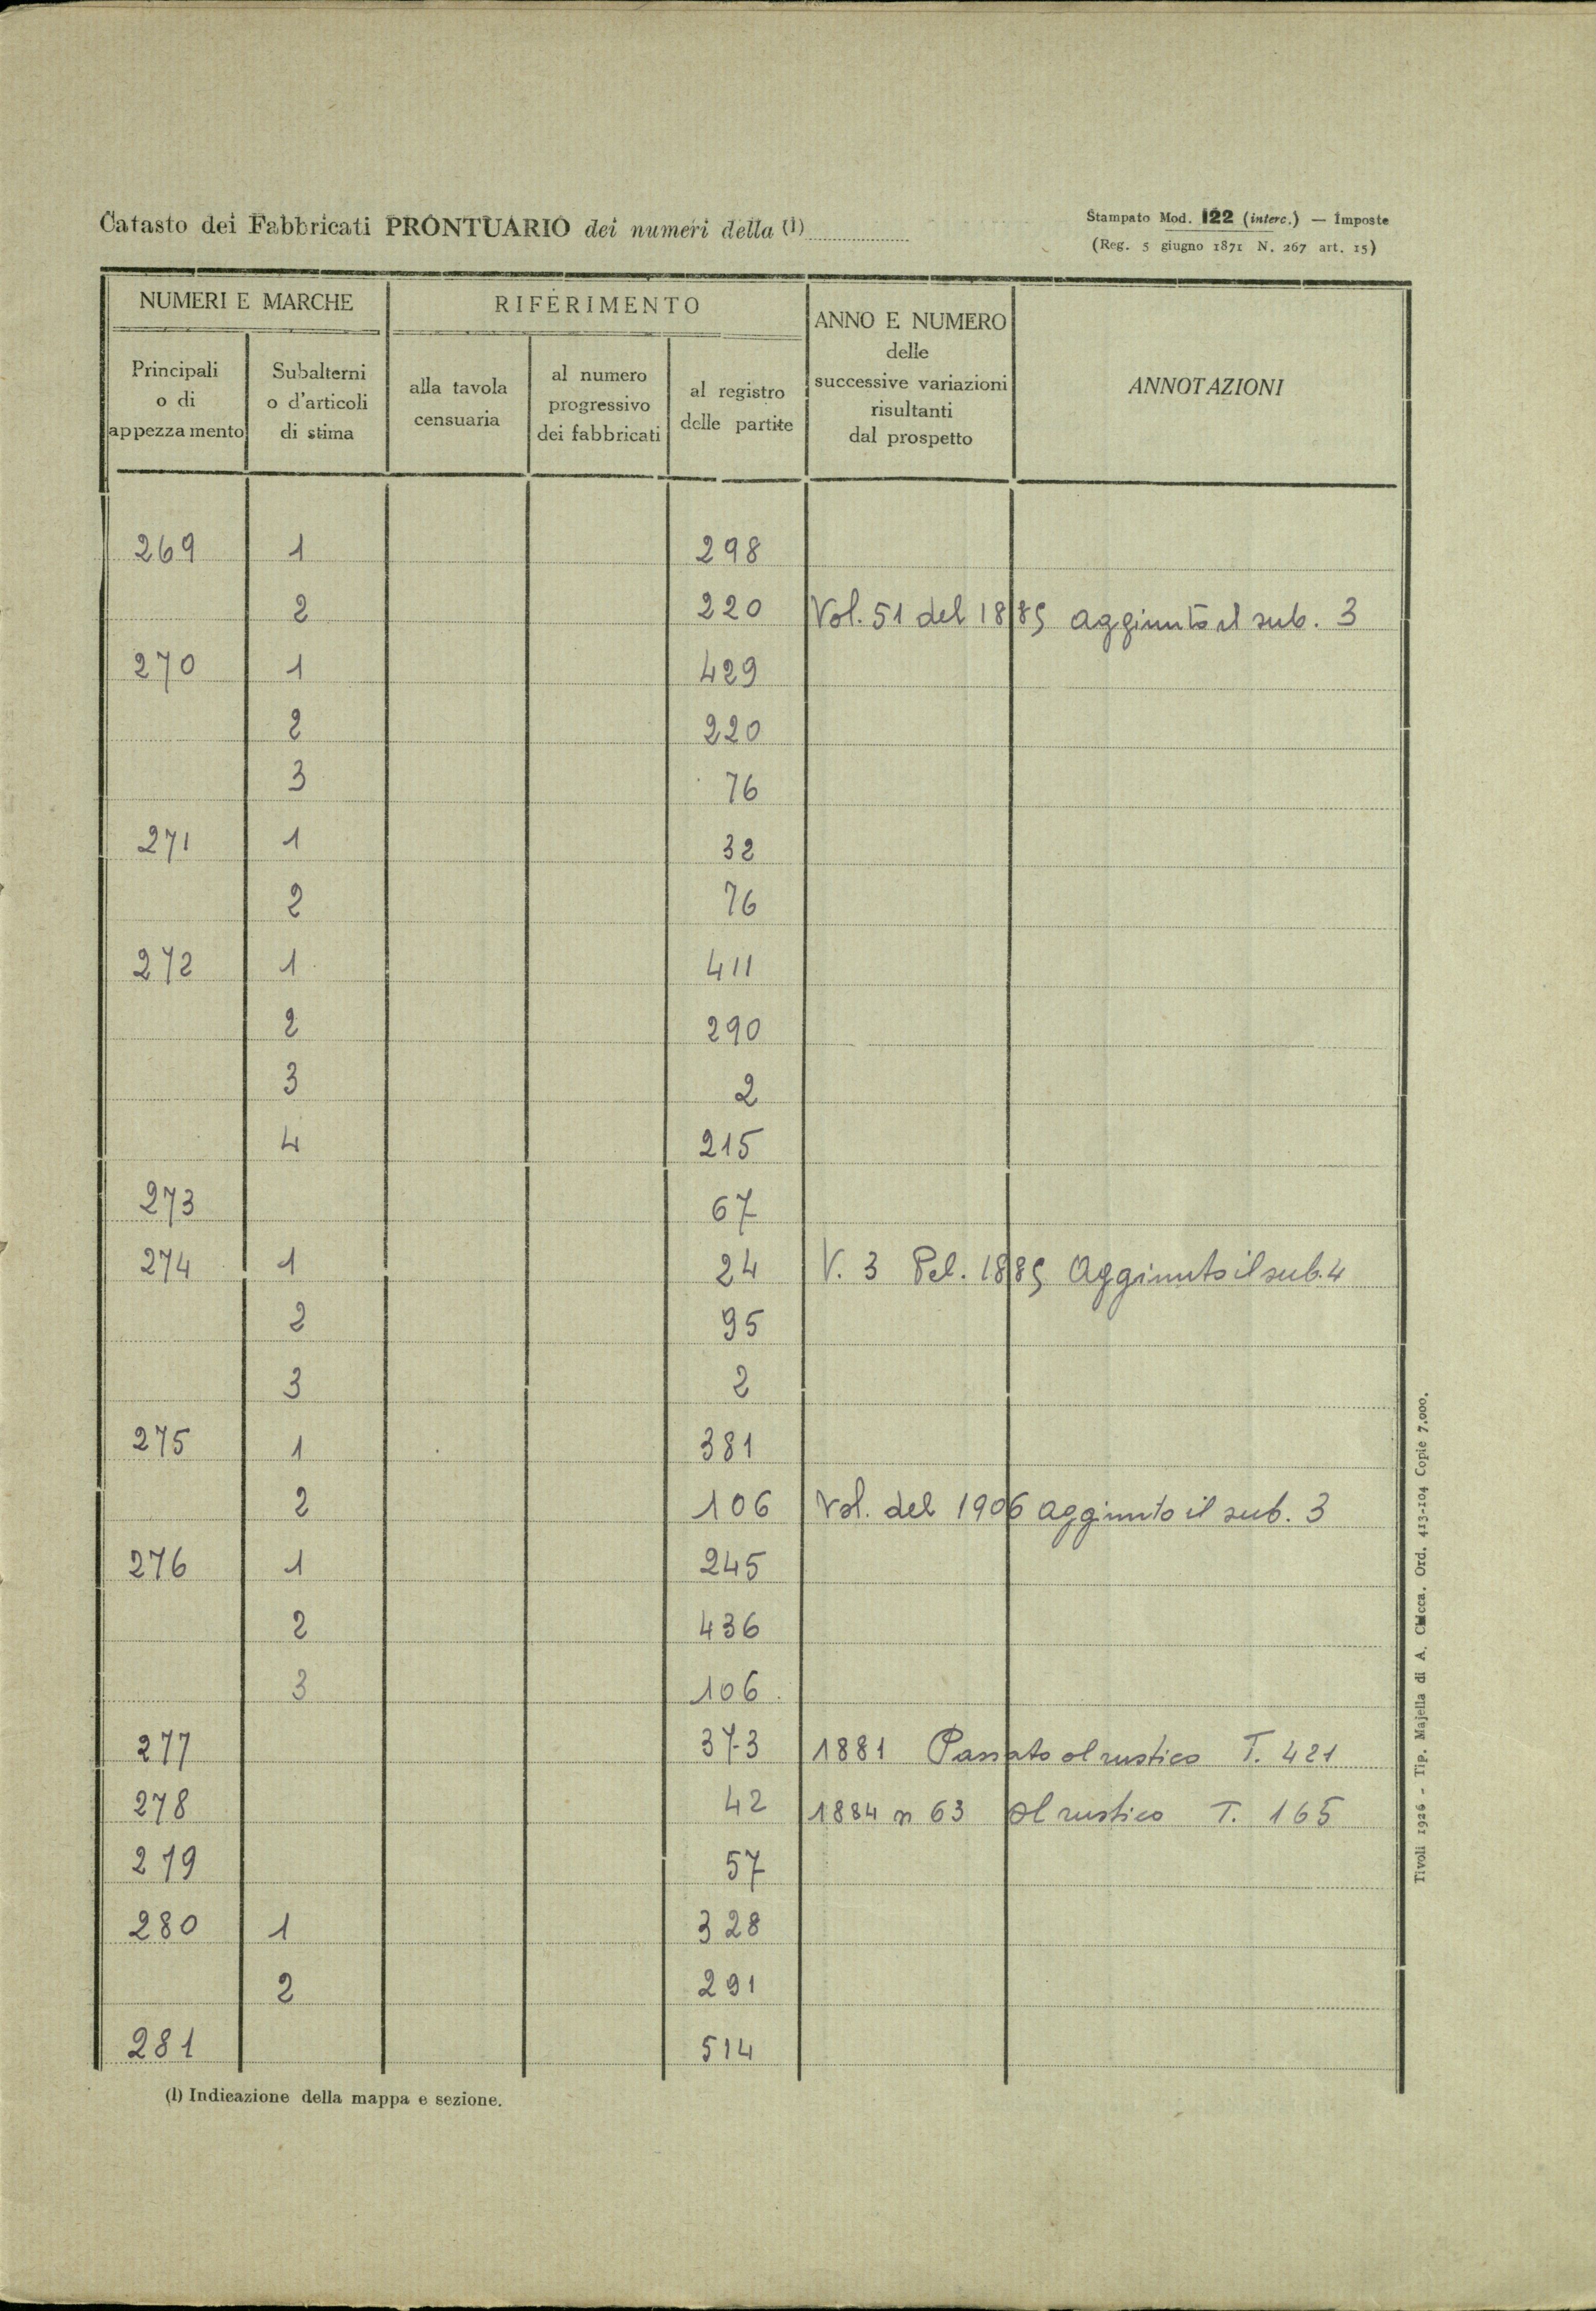 Catasto dei Fabbricati PRONTUARIO dei numeri della (1)
Stampato Mod. 122 (interc.) — Imposte
(Reg. 5 giugno 1871 N. 267 art. 15)
NUMERI E MARCHE
RIFERIMENTO
ANNO E NUMERO
delle
successive variazioni
risultanti
dal prospetto
ANNOTAZIONI
Principali
o di
appezzamento
Subalterni
o d'articoli
di stima
alla tavola
censuaria
al numero
progressivo
dei fabbricati
al registro
delle partite
269 1 298
2 220 Vol. 51 del 1885 aggiunto il sub. 3
270 1 429
2 220
3 76
271 1 32
2 76
272 1 411
2 290
3 2
4 215
273 67
274 1 24 V. 3 Pel. 1885 Aggiunto il sub. 4
2 95
3 2
275 1 381
2 106 Vol. del 1906 aggiunto il sub. 3
276 1 245
2 436
3 106
277 373 1881 Passato al rustico T. 421
278 42 1884 n 63 al rustico T. 165
279 57
280 1 328
2 291
281 514
(1) Indicazione della mappa e sezione.
Tivoli 1926 - Tip. Majella di A. Chicca. Ord. 413-104 Copie 7.000.